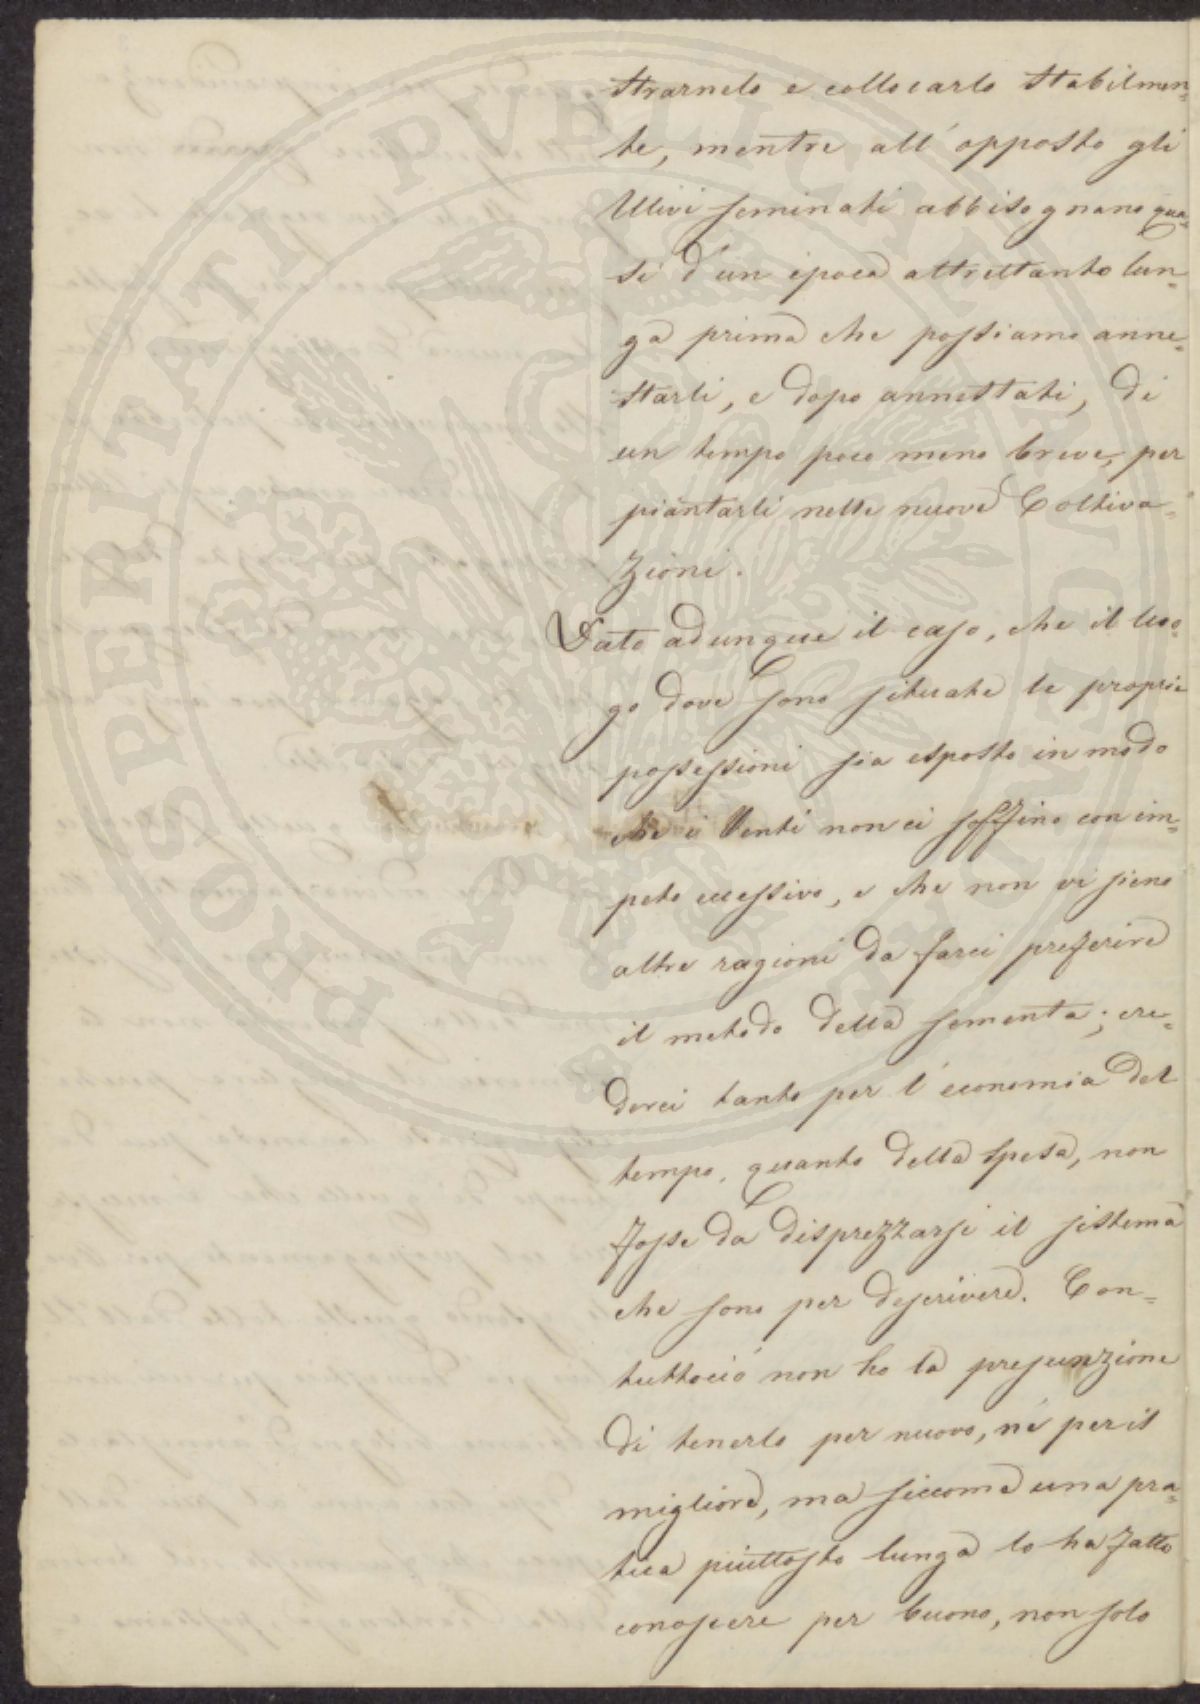 strarnelo e collocarlo stabilmen=
te, mentre all'opposto gli
Ulivi seminati abbisognano qua=
si d'un época altrettanto lun=
ga prima che possiamo anne=
starli, e dopo annestati, di
un tempo poco meno breve, per
piantarli nelle nuove Coltiva=
zioni.
Dato adunque il caso, che il luo=
go dove sono situate le proprie
possessioni sia esposto in modo
che i Venti non ci soffino con im=
peto eccessivo, e che non vi sieno
altre ragioni da farci preferire
il metodo della sementa; cre=
derei tanto per l'economia del
tempo, quanto della spesa, non
fosse da disprezzarsi il sistema
che sono per descrivere. Con=
tuttociò non ho la presunzione
di tenerlo per nuovo, né per il
migliore, ma siccome una pra=
tica piuttosto lunga lo ha fatto
conoscere per buono, non solo
PROSPERITATI PUBLICAE AUGENDAE